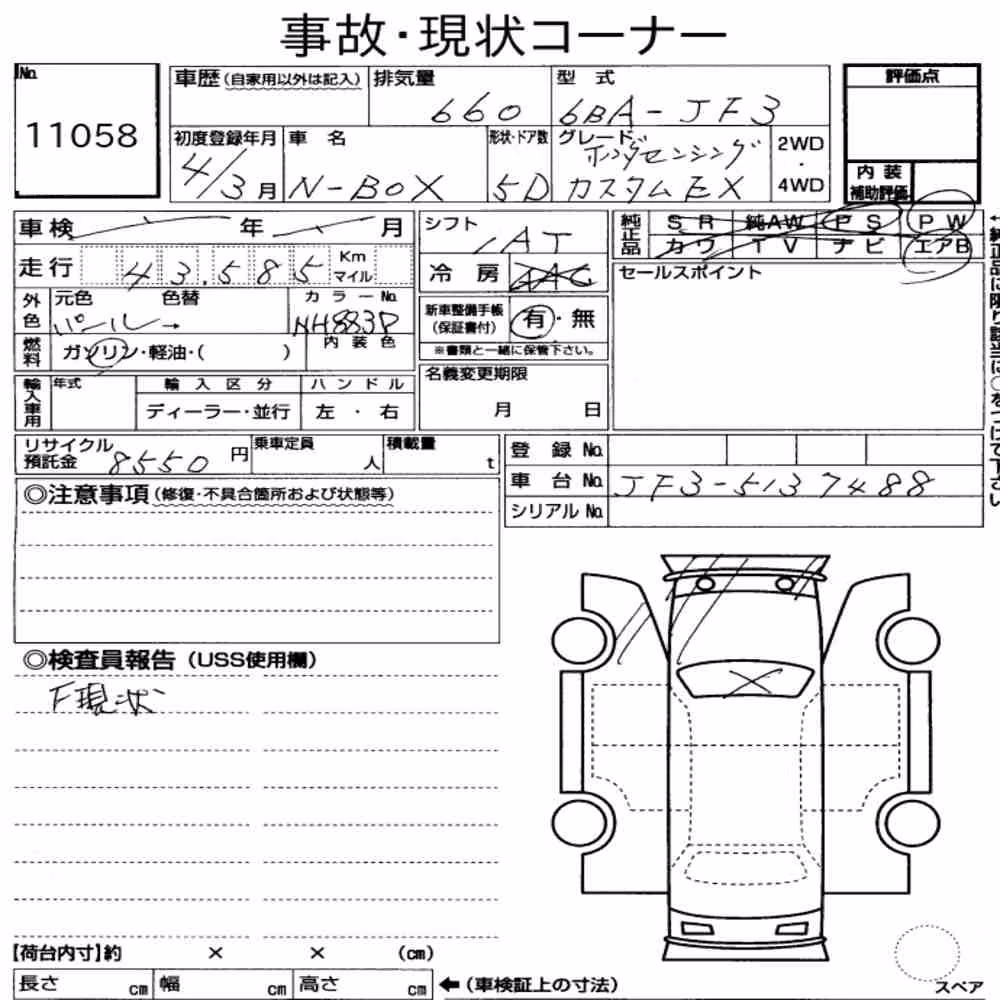 事故・現状コーナー
No.
11058
車歴(自家用以外は記入)
排気量
660
型 式
6BA-JF3
評価点
初度登録年月
4/3月
車 名
N-BOX
形状・ドア数
5D
グレード
ホンダセンシング
カスタムEX
2WD
・
4WD
内 装
補助評価
車検 年 月
走行 43.585 Km
マイル
シフト
AT
冷 房 AAC
純正品
SR 純AW PS PW
カワ TV ナビ エアB
←純正品に限り該当に○をつけて下さい
セールスポイント
外色
元色
パール→
色替
カラーNo.
NH883P
新車整備手帳
(保証書付)
有・無
※書類と一緒に保管下さい。
燃料
ガソリン・軽油・( )
内装色
輸入車用
年式
輸入区分
ディーラー・並行
ハンドル
左・右
名義変更期限
月 日
リサイクル
預託金 8550 円
乗車定員
人
積載量
t
登 録 No.
車 台 No. JF3-5137488
シリアル No.
◎注意事項(修復・不具合箇所および状態等)
◎検査員報告(USS使用欄)
F現状
【荷台内寸】約 × × (cm)
長さ cm 幅 cm 高さ cm ←(車検証上の寸法)
スペア